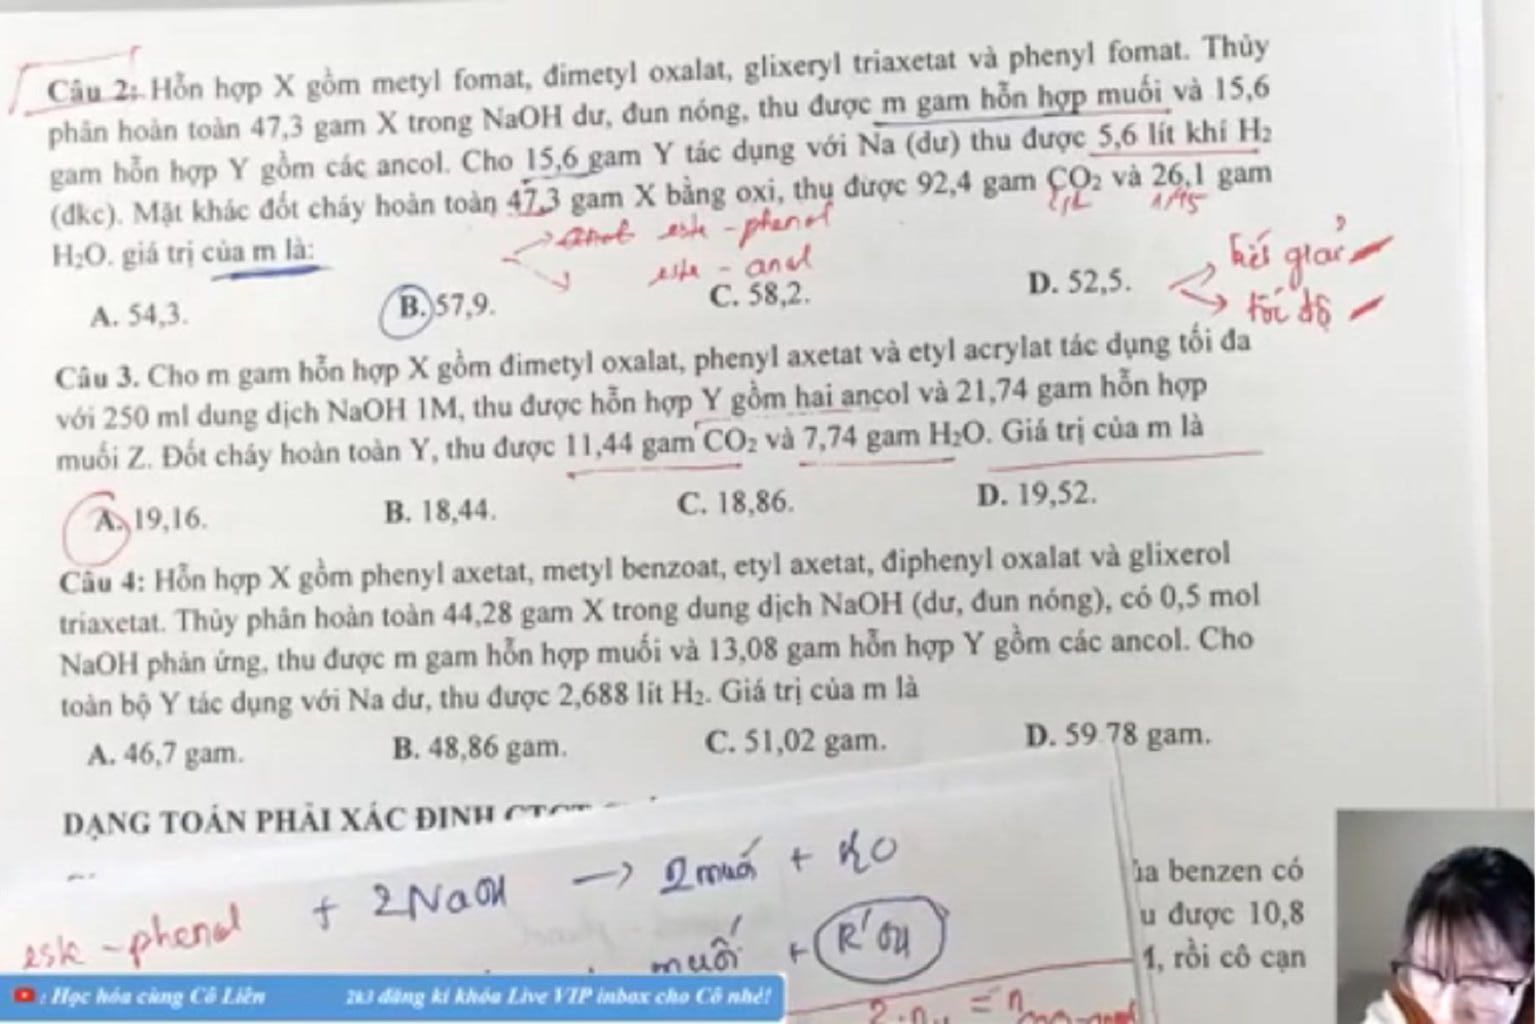 Câu 2: Hỗn hợp X gồm metyl fomat, đimetyl oxalat, glixeryl triaxetat và phenyl fomat. Thủy
phân hoàn toàn 47,3 gam X trong NaOH dư, đun nóng, thu được m gam hỗn hợp muối và 15,6
gam hỗn hợp Y gồm các ancol. Cho 15,6 gam Y tác dụng với Na (dư) thu được 5,6 lít khí H₂
(đkc). Mặt khác đốt cháy hoàn toàn 47,3 gam X bằng oxi, thu được 92,4 gam CO₂ và 26,1 gam
2,1 1,45
H₂O. giá trị của m là:
este - phenol
este - ancol
hết giờ
tốc độ
A. 54,3. B. 57,9. C. 58,2. D. 52,5.
Câu 3. Cho m gam hỗn hợp X gồm đimetyl oxalat, phenyl axetat và etyl acrylat tác dụng tối đa
với 250 ml dung dịch NaOH 1M, thu được hỗn hợp Y gồm hai ancol và 21,74 gam hỗn hợp
muối Z. Đốt cháy hoàn toàn Y, thu được 11,44 gam CO₂ và 7,74 gam H₂O. Giá trị của m là
A. 19,16. B. 18,44. C. 18,86. D. 19,52.
Câu 4: Hỗn hợp X gồm phenyl axetat, metyl benzoat, etyl axetat, điphenyl oxalat và glixerol
triaxetat. Thủy phân hoàn toàn 44,28 gam X trong dung dịch NaOH (dư, đun nóng), có 0,5 mol
NaOH phản ứng, thu được m gam hỗn hợp muối và 13,08 gam hỗn hợp Y gồm các ancol. Cho
toàn bộ Y tác dụng với Na dư, thu được 2,688 lít H₂. Giá trị của m là
A. 46,7 gam. B. 48,86 gam. C. 51,02 gam. D. 59 78 gam.
DẠNG TOÁN PHẢI XÁC ĐỊNH CTCT
este - phenol + 2NaOH → 2 muối + H₂O
muối + R'OH
ủa benzen có
u được 10,8
1, rồi cô cạn
: Học hóa cùng Cô Liên 2k3 đăng kí khóa Live VIP inbox cho Cô nhé!